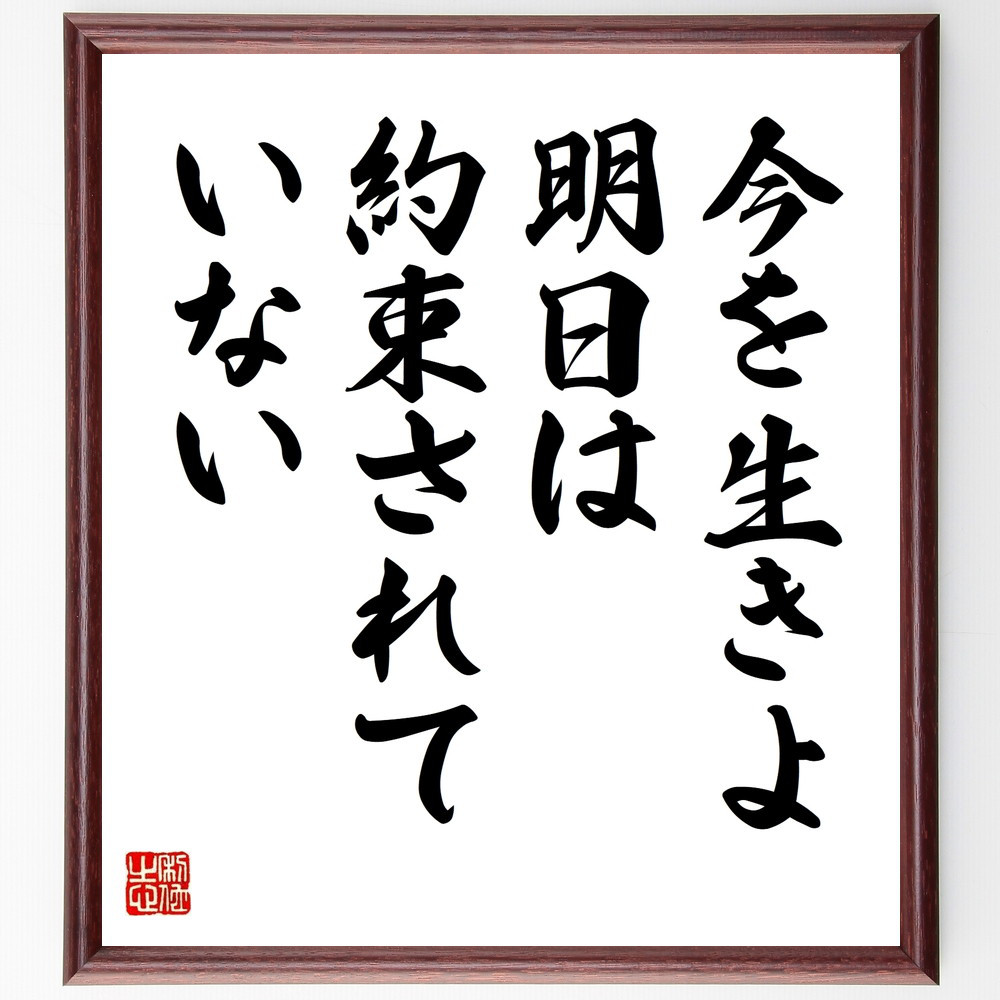 今を生きよ
明日は
約束されて
いない